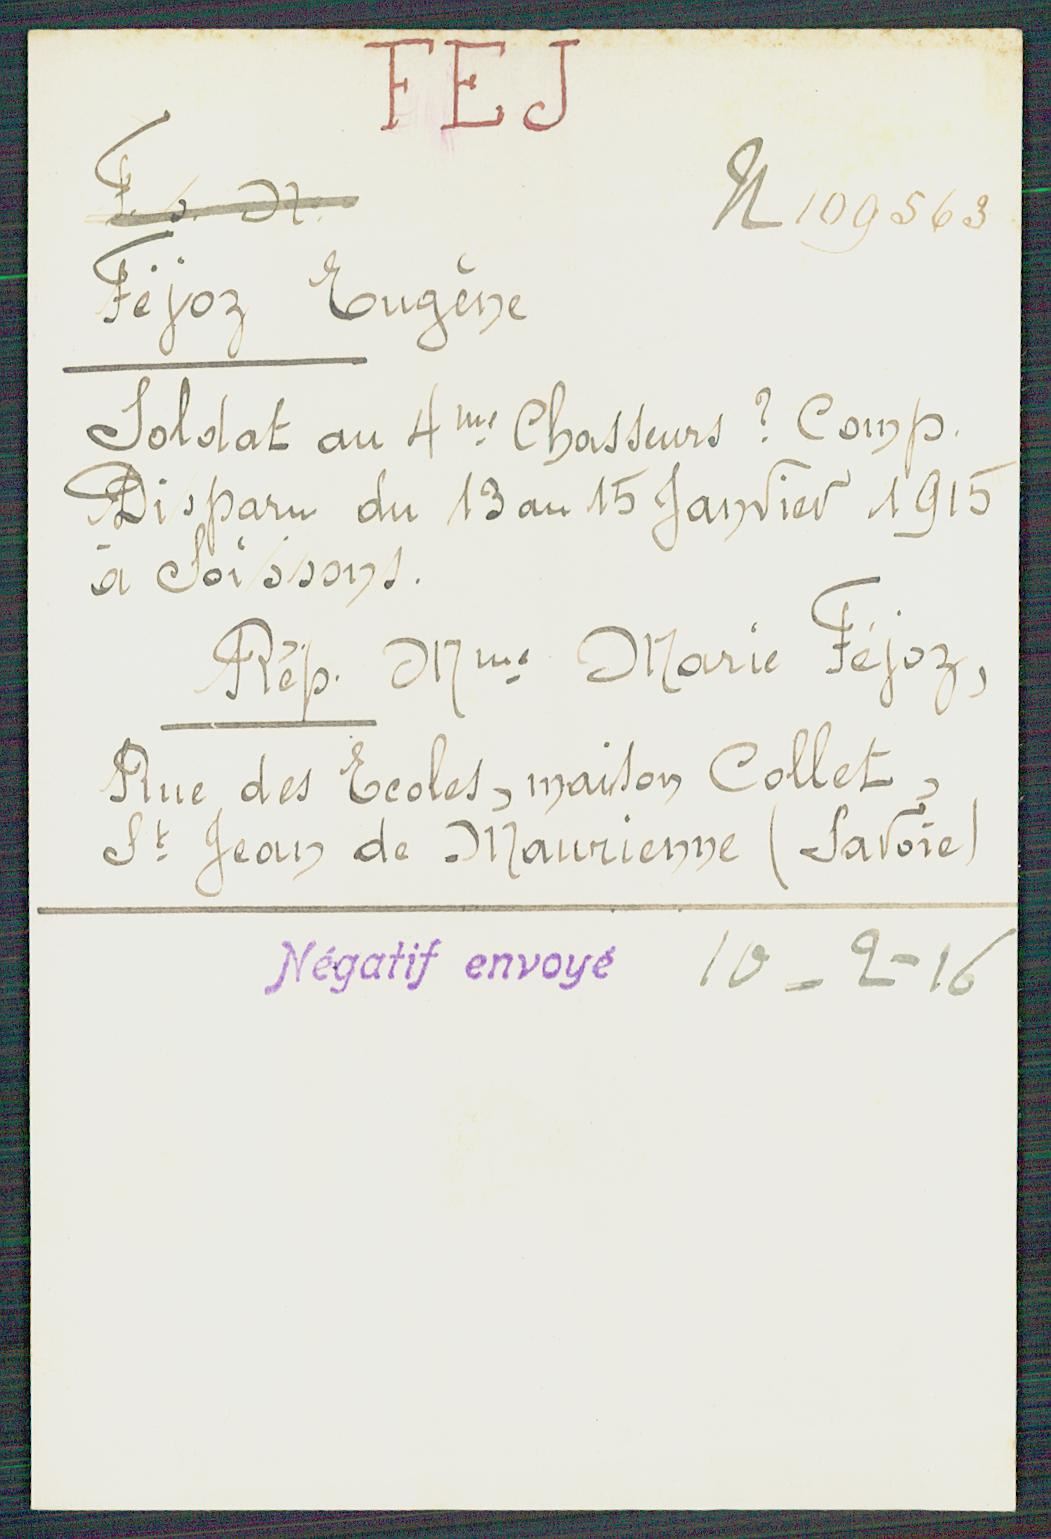 FEJ
F. s. M.
N 109563
Féjoz Eugène
Soldat au 4me Chasseurs ? Comp.
Disparu du 13 au 15 Janvier 1915
à Soissons.
Rép. Mme Marie Féjoz,
Rue des Ecoles, maison Collet,
St Jean de Maurienne (Savoie)
Négatif envoyé 10-2-16